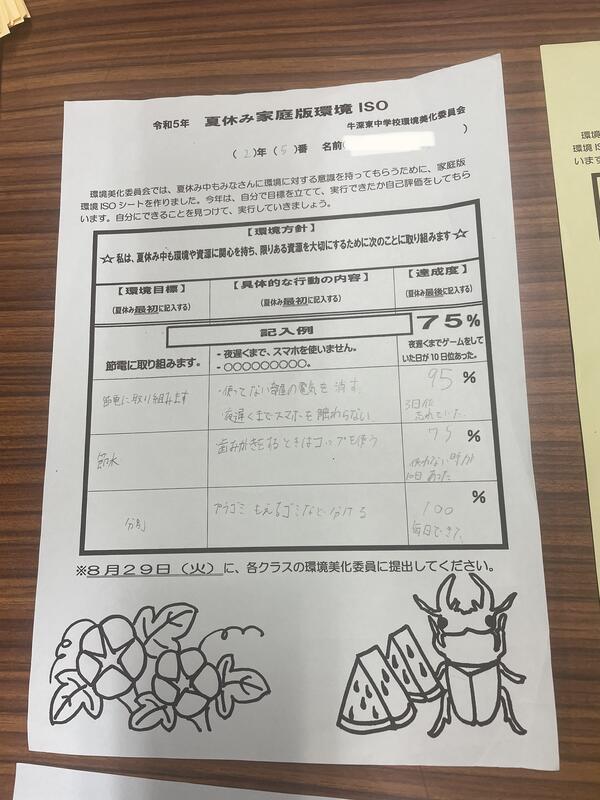 令和5年 夏休み家庭版環境ISO
牛深東中学校環境美化委員会
(2)年(5)番 名前( )
環境美化委員会では、夏休み中もみなさんに環境に対する意識を持ってもらうために、家庭版
環境ISOシートを作りました。今年は、自分で目標を立てて、実行できたか自己評価をしてもら
います。自分にできることを見つけて、実行していきましょう。
【環境方針】
☆私は、夏休み中も環境や資源に関心を持ち、限りある資源を大切にするために次のことに取り組みます☆
【環境目標】
(夏休み最初に記入する)
【具体的な行動の内容】
(夏休み最初に記入する)
【達成度】
(夏休み最後に記入する)
記入例
75%
節電に取り組みます。
・夜遅くまで、スマホを使いません。
・○○○○○○○○。
夜遅くまでゲームをして
いた日が10日位あった。
節電に取り組みます
・使ってない部屋の電気を消す
・夜遅くまでスマホを触わらない
95%
3日位
忘れていた。
節水
歯みがきをするときはコップを使う
75%
使わない時が
10日あった
分別
プラゴミ もえるゴミなど分ける
100%
毎日できた
※8月29日(火)に、各クラスの環境美化委員に提出してください。